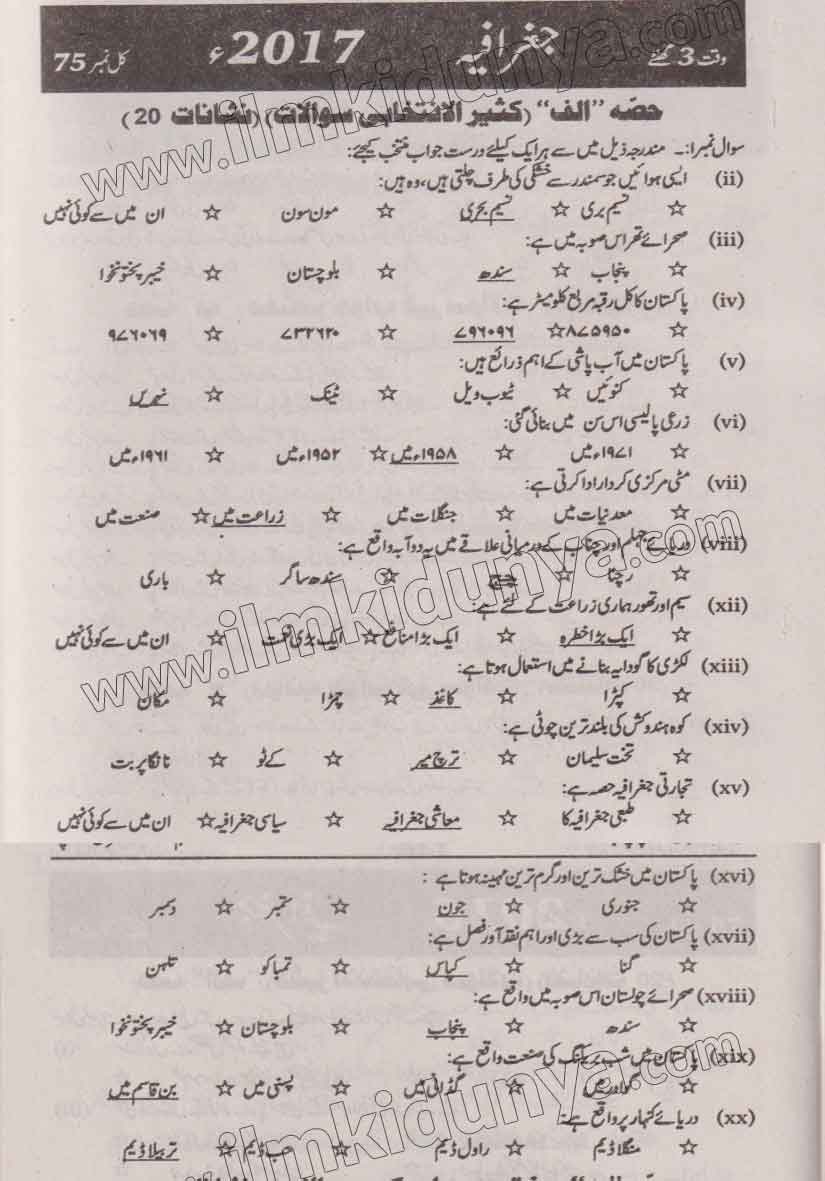 وقت 3 گھنٹے جغرافیہ 2017ء کل نمبر 75
حصّہ "الف" (کثیر الانتخابی سوالات) (نشانات 20)
سوال نمبر ۱:۔ مندرجہ ذیل میں سے ہر ایک کیلئے درست جواب منتخب کیجئے:
(ii) ایسی ہوائیں جو سمندر سے خشکی کی طرف چلتی ہیں، وہ ہیں:
☆ نسیم بری ☆ نسیم بحری ☆ مون سون ☆ ان میں سے کوئی نہیں
(iii) صحرائے تھر اس صوبہ میں ہے:
☆ پنجاب ☆ سندھ ☆ بلوچستان ☆ خیبر پختونخوا
(iv) پاکستان کا کل رقبہ مربع کلومیٹر ہے:
☆ ۸۷۵۹۵۰ ☆ ۷۹۶۰۹۶ ☆ ۷۳۲۶۲۰ ☆ ۹۷۶۰۶۹
(v) پاکستان میں آب پاشی کے اہم ذرائع ہیں:
☆ کنوئیں ☆ ٹیوب ویل ☆ ٹینک ☆ نہریں
(vi) زرعی پالیسی اس سن میں بنائی گئی:
☆ ۱۹۷۱ء میں ☆ ۱۹۵۸ء میں ☆ ۱۹۵۲ء میں ☆ ۱۹۶۱ء میں
(vii) مٹی مرکزی کردار ادا کرتی ہے:
☆ معدنیات میں ☆ جنگلات میں ☆ زراعت میں ☆ صنعت میں
(viii) دریائے جہلم اور چناب کے درمیانی علاقے میں یہ دوآبہ واقع ہے:
☆ رچنا ☆ چج ☆ سندھ ساگر ☆ باری
(xii) سیم اور تھور ہماری زراعت کے لئے ہے:
☆ ایک بڑا خطرہ ☆ ایک بڑا منافع ☆ ایک بڑی نعمت ☆ ان میں سے کوئی نہیں
(xiii) لکڑی کا گودا یہ بنانے میں استعمال ہوتا ہے:
☆ کپڑا ☆ کاغذ ☆ چمڑا ☆ مکان
(xiv) کوہ ہندوکش کی بلند ترین چوٹی ہے:
☆ تخت سلیمان ☆ ترچ میر ☆ کے ٹو ☆ نانگا پربت
(xv) تجارتی جغرافیہ حصہ ہے:
☆ طبعی جغرافیہ کا ☆ معاشی جغرافیہ ☆ سیاسی جغرافیہ ☆ ان میں سے کوئی نہیں
(xvi) پاکستان میں خشک ترین اور گرم ترین مہینہ ہوتا ہے:
☆ جنوری ☆ جون ☆ ستمبر ☆ دسمبر
(xvii) پاکستان کی سب سے بڑی اور اہم نقد آور فصل ہے:
☆ گنا ☆ کپاس ☆ تمباکو ☆ تلہن
(xviii) صحرائے چولستان اس صوبہ میں واقع ہے:
☆ سندھ ☆ پنجاب ☆ بلوچستان ☆ خیبر پختونخوا
(xix) پاکستان میں شپ بریکنگ کی صنعت واقع ہے:
☆ گوادر میں ☆ گڈانی میں ☆ پسنی میں ☆ بن قاسم میں
(xx) دریائے کنہار پر واقع ہے:
☆ منگلا ڈیم ☆ راول ڈیم ☆ حب ڈیم ☆ تربیلا ڈیم
www.ilmkidunya.com
www.ilmkidunya.com
www.ilmkidunya.com